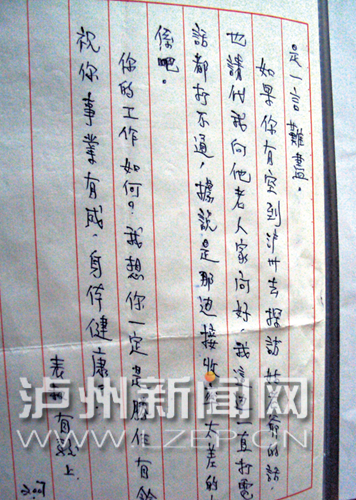 是一言難盡。
如果你有空到泸州去探訪 的話,
也請代我向他老人家问好,我這 一直打電
話都打不通,據說是那边接收 太差的
係吧。
你的工作如何?我想你一定是勝任有餘
祝你事業有成、身体健康。
表 有 上
泸州新闻网
WWW.LZEP.CN